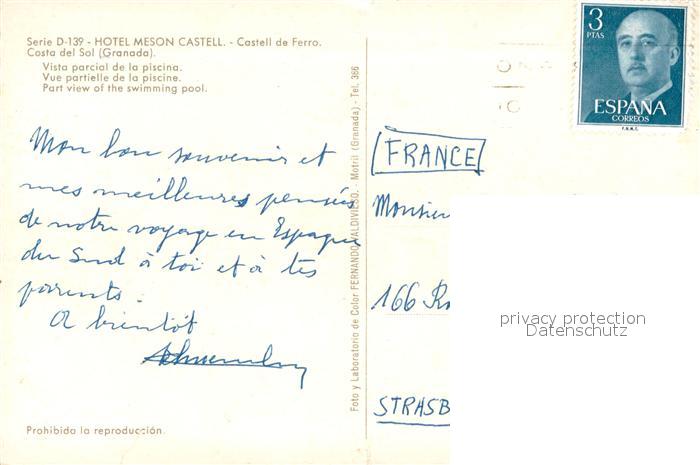 Serie D-139 - HOTEL MESON CASTELL. - Castell de Ferro.
Costa del Sol (Granada).
Vista parcial de la piscina.
Vue partielle de la piscine.
Part view of the swimming pool.
Mon bon souvenir et
mes meilleures pensées
de notre voyage en Espagne
du Sud à toi et à tes
parents.
A bientôt
Prohibida la reproducción.
Foto y Laboratorio de Color FERNANDO VALDIVIESO. - Motril (Granada) - Tel. 386
3
PTAS
ESPAÑA
CORREOS
F.N.M.T.
FRANCE
Monsieu
166 R
STRASB
privacy protection
Datenschutz